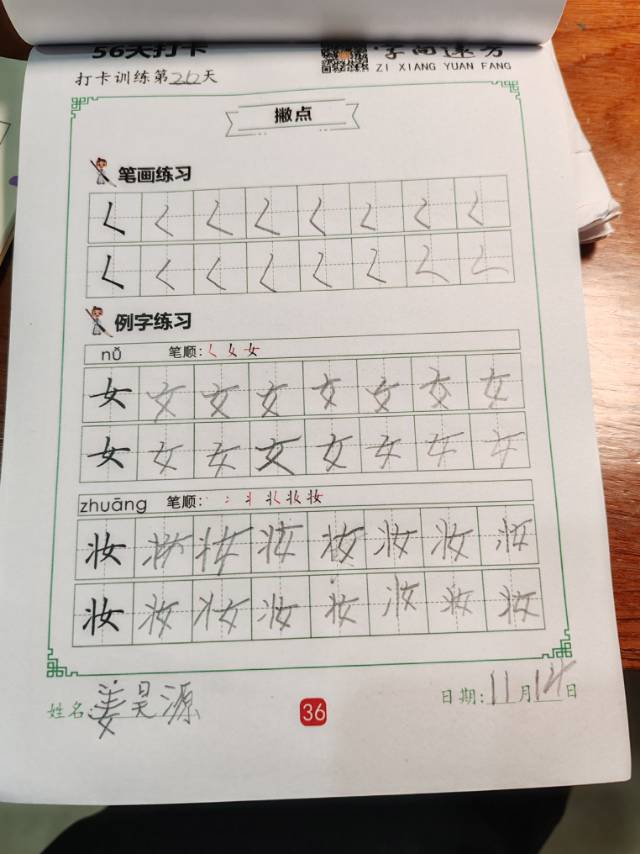 56天打卡 字向速方
ZI XIANG YUAN FANG
打卡训练第26天
撇点
笔画练习
𡿨 𡿨 𡿨 𡿨 𡿨 𡿨 𡿨 𡿨
𡿨 𡿨 𡿨 𡿨 𡿨 𡿨 𡿨 𡿨
例字练习
nǚ 笔顺:
女 女 女 女 女 女 女 女
女 女 女 女 女 女 女 女
zhuāng 笔顺:
妆 妆 妆 妆 妆 妆 妆 妆
妆 妆 妆 妆 妆 妆 妆 妆
姓名:姜昊源 36 日期:11月14日